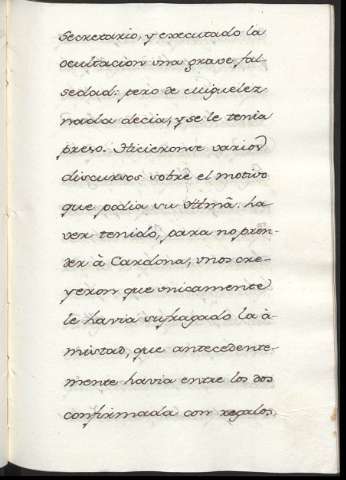 Secretario, y executado la
ocultacion una grave fal-
sedad: pero de Miguelez
nada decia, y se le tenia
preso. Hicieronse varios
discursos sobre el motivo
que podia su Yttmã. ha
ver tenido, para no pren-
der à Cardona, unos cre-
yeron que unicamente
le havia sufragado la a-
mistad, que antecedente-
mente havia entre los dos
confirmada con regalos,